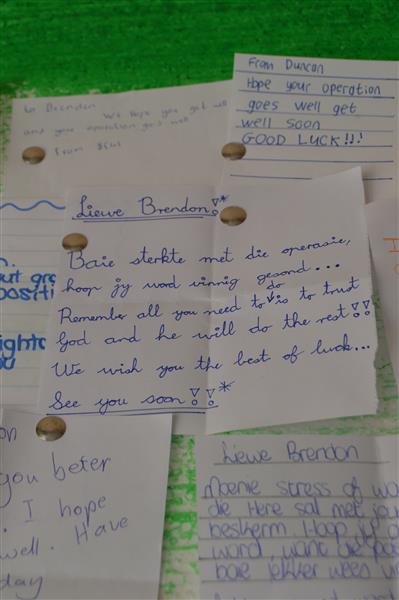 to Brendon
We hope you get well
and your operation goes well
From
From Duncan
Hope your operation
goes well get
well soon
GOOD LUCK!!!
Liewe Brendon!*
Baie sterkte met die operasie,
hoop jy word vinnig gesond...
Remember all you need to do is to trust
God and he will do the rest!!
We wish you the best of luck...
See you soon!!*
you beter
I hope
well. Have
day
Liewe Brendon
Moenie stress of wo
die Here sal met jou
beskerm. Hoop jy g
word, want die
baie lekker wees